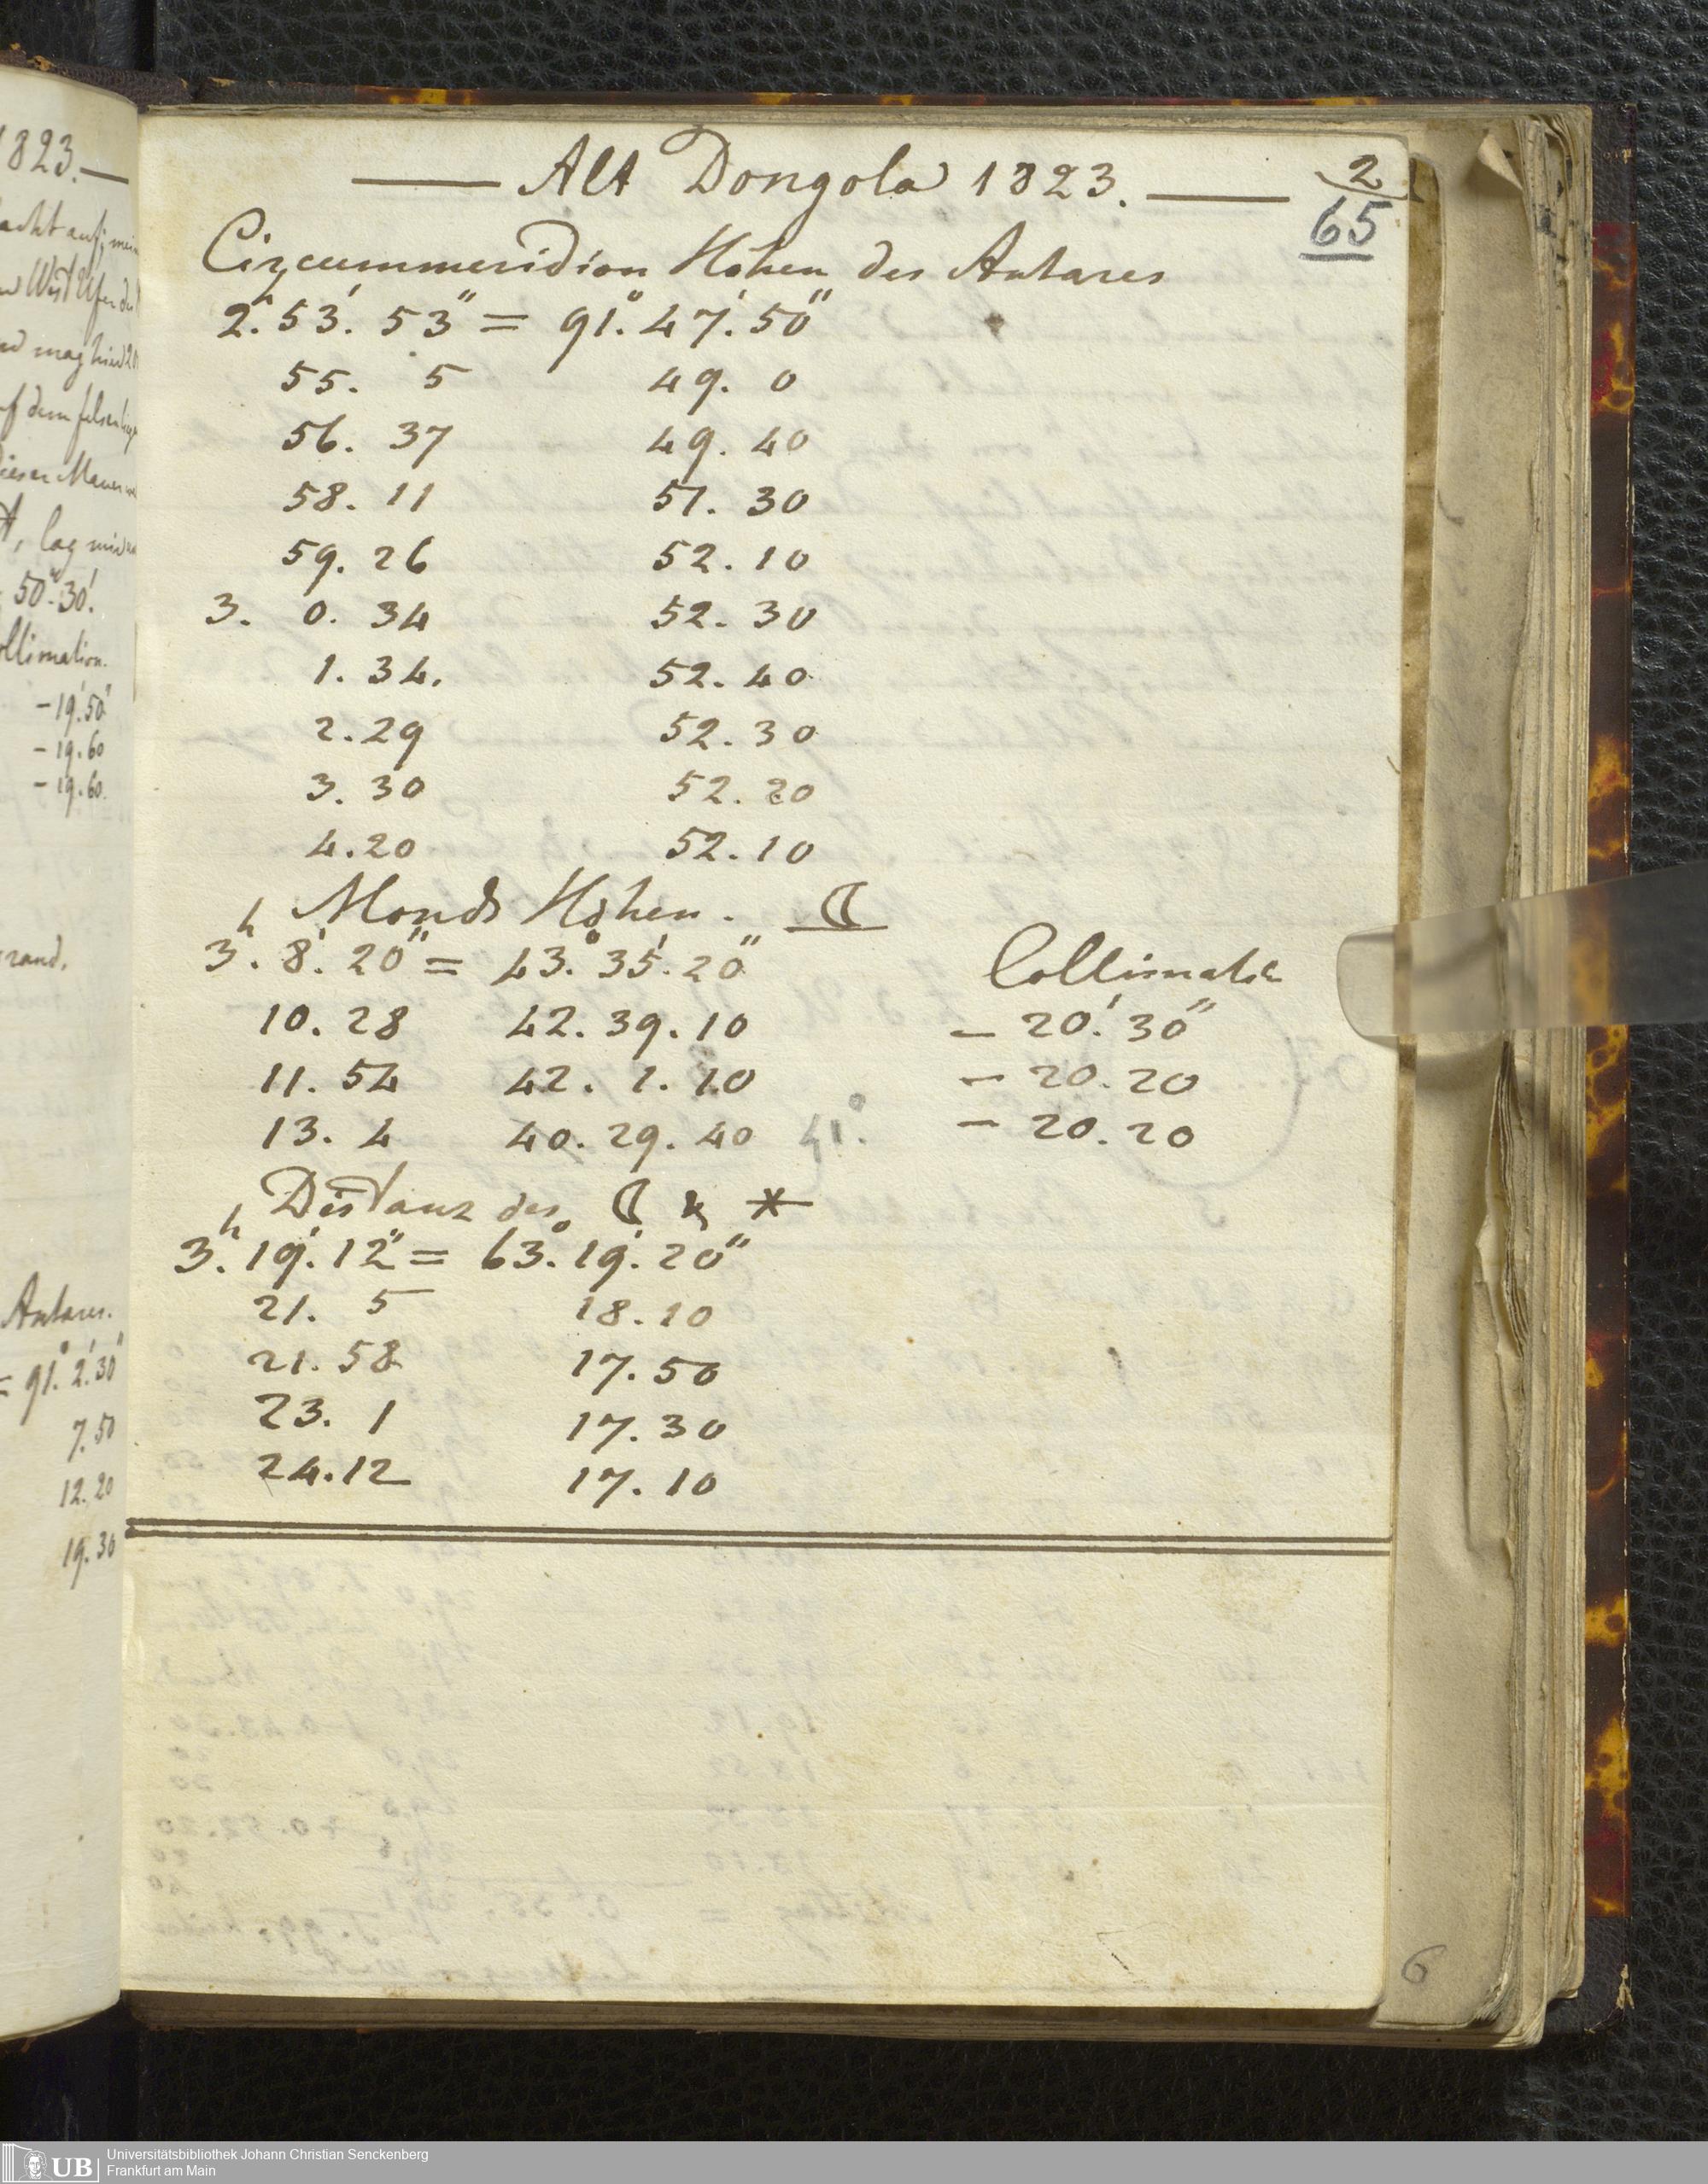 1823.—
50°.30'.
ollimation.
-19'.50"
-19.60
-19.60.
rand.
Antares.
= 91.° 2.' 30"
7.50
12.20
19.30
— Alt Dongola 1823. —
2
65
Circummeridian Höhen des Antares
2.h 53.' 53" = 91.° 47.' 50"
55. 5 49. 0
56. 37 49. 40
58. 11 51. 30
59. 26 52. 10
3. 0. 34 52. 30
1. 34. 52. 40
2. 29 52. 30
3. 30 52. 20
4. 20 52. 10
Monds Höhen. ☾
3.h 8.' 20" = 43.° 35.' 20"
10. 28 42. 39. 10
11. 54 42. 1. 10
13. 4 40. 29. 40 41°.
Collimatio
- 20.' 30"
- 20. 20
- 20. 20
Distanz des ☾ & *
3.h 19.' 12" = 63.° 19.' 20"
21. 5 18. 10
21. 58 17. 50
23. 1 17. 30
24. 12 17. 10
6
UB
Universitätsbibliothek Johann Christian Senckenberg
Frankfurt am Main